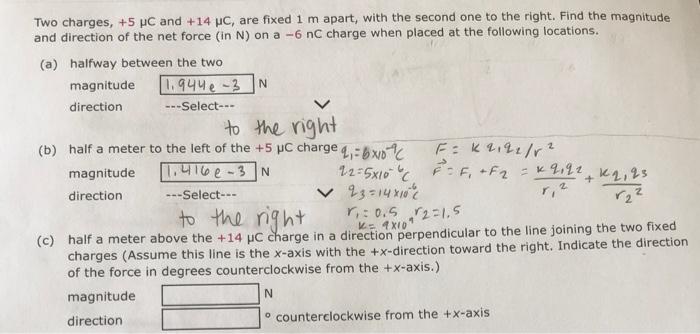 Two charges, +5 μC and +14 μC, are fixed 1 m apart, with the second one to the right. Find the magnitude
and direction of the net force (in N) on a −6 nC charge when placed at the following locations.
(a) halfway between the two
magnitude 1.944e-3 N
direction ---Select---
to the right
(b) half a meter to the left of the +5 μC charge q₁=6x10⁻⁹C F = k q₁q₂/r²
magnitude 1.416e-3 N q2=5x10⁻⁶C F⃗ = F₁ + F₂ = k q₁q₂/r₁² + k q₁q₃/r₂²
direction ---Select--- q3=14x10⁻⁶C
to the right r₁=0.5, r2=1.5
k= 9x10⁹
(c) half a meter above the +14 μC charge in a direction perpendicular to the line joining the two fixed
charges (Assume this line is the x-axis with the +x-direction toward the right. Indicate the direction
of the force in degrees counterclockwise from the +x-axis.)
magnitude N
direction ° counterclockwise from the +x-axis